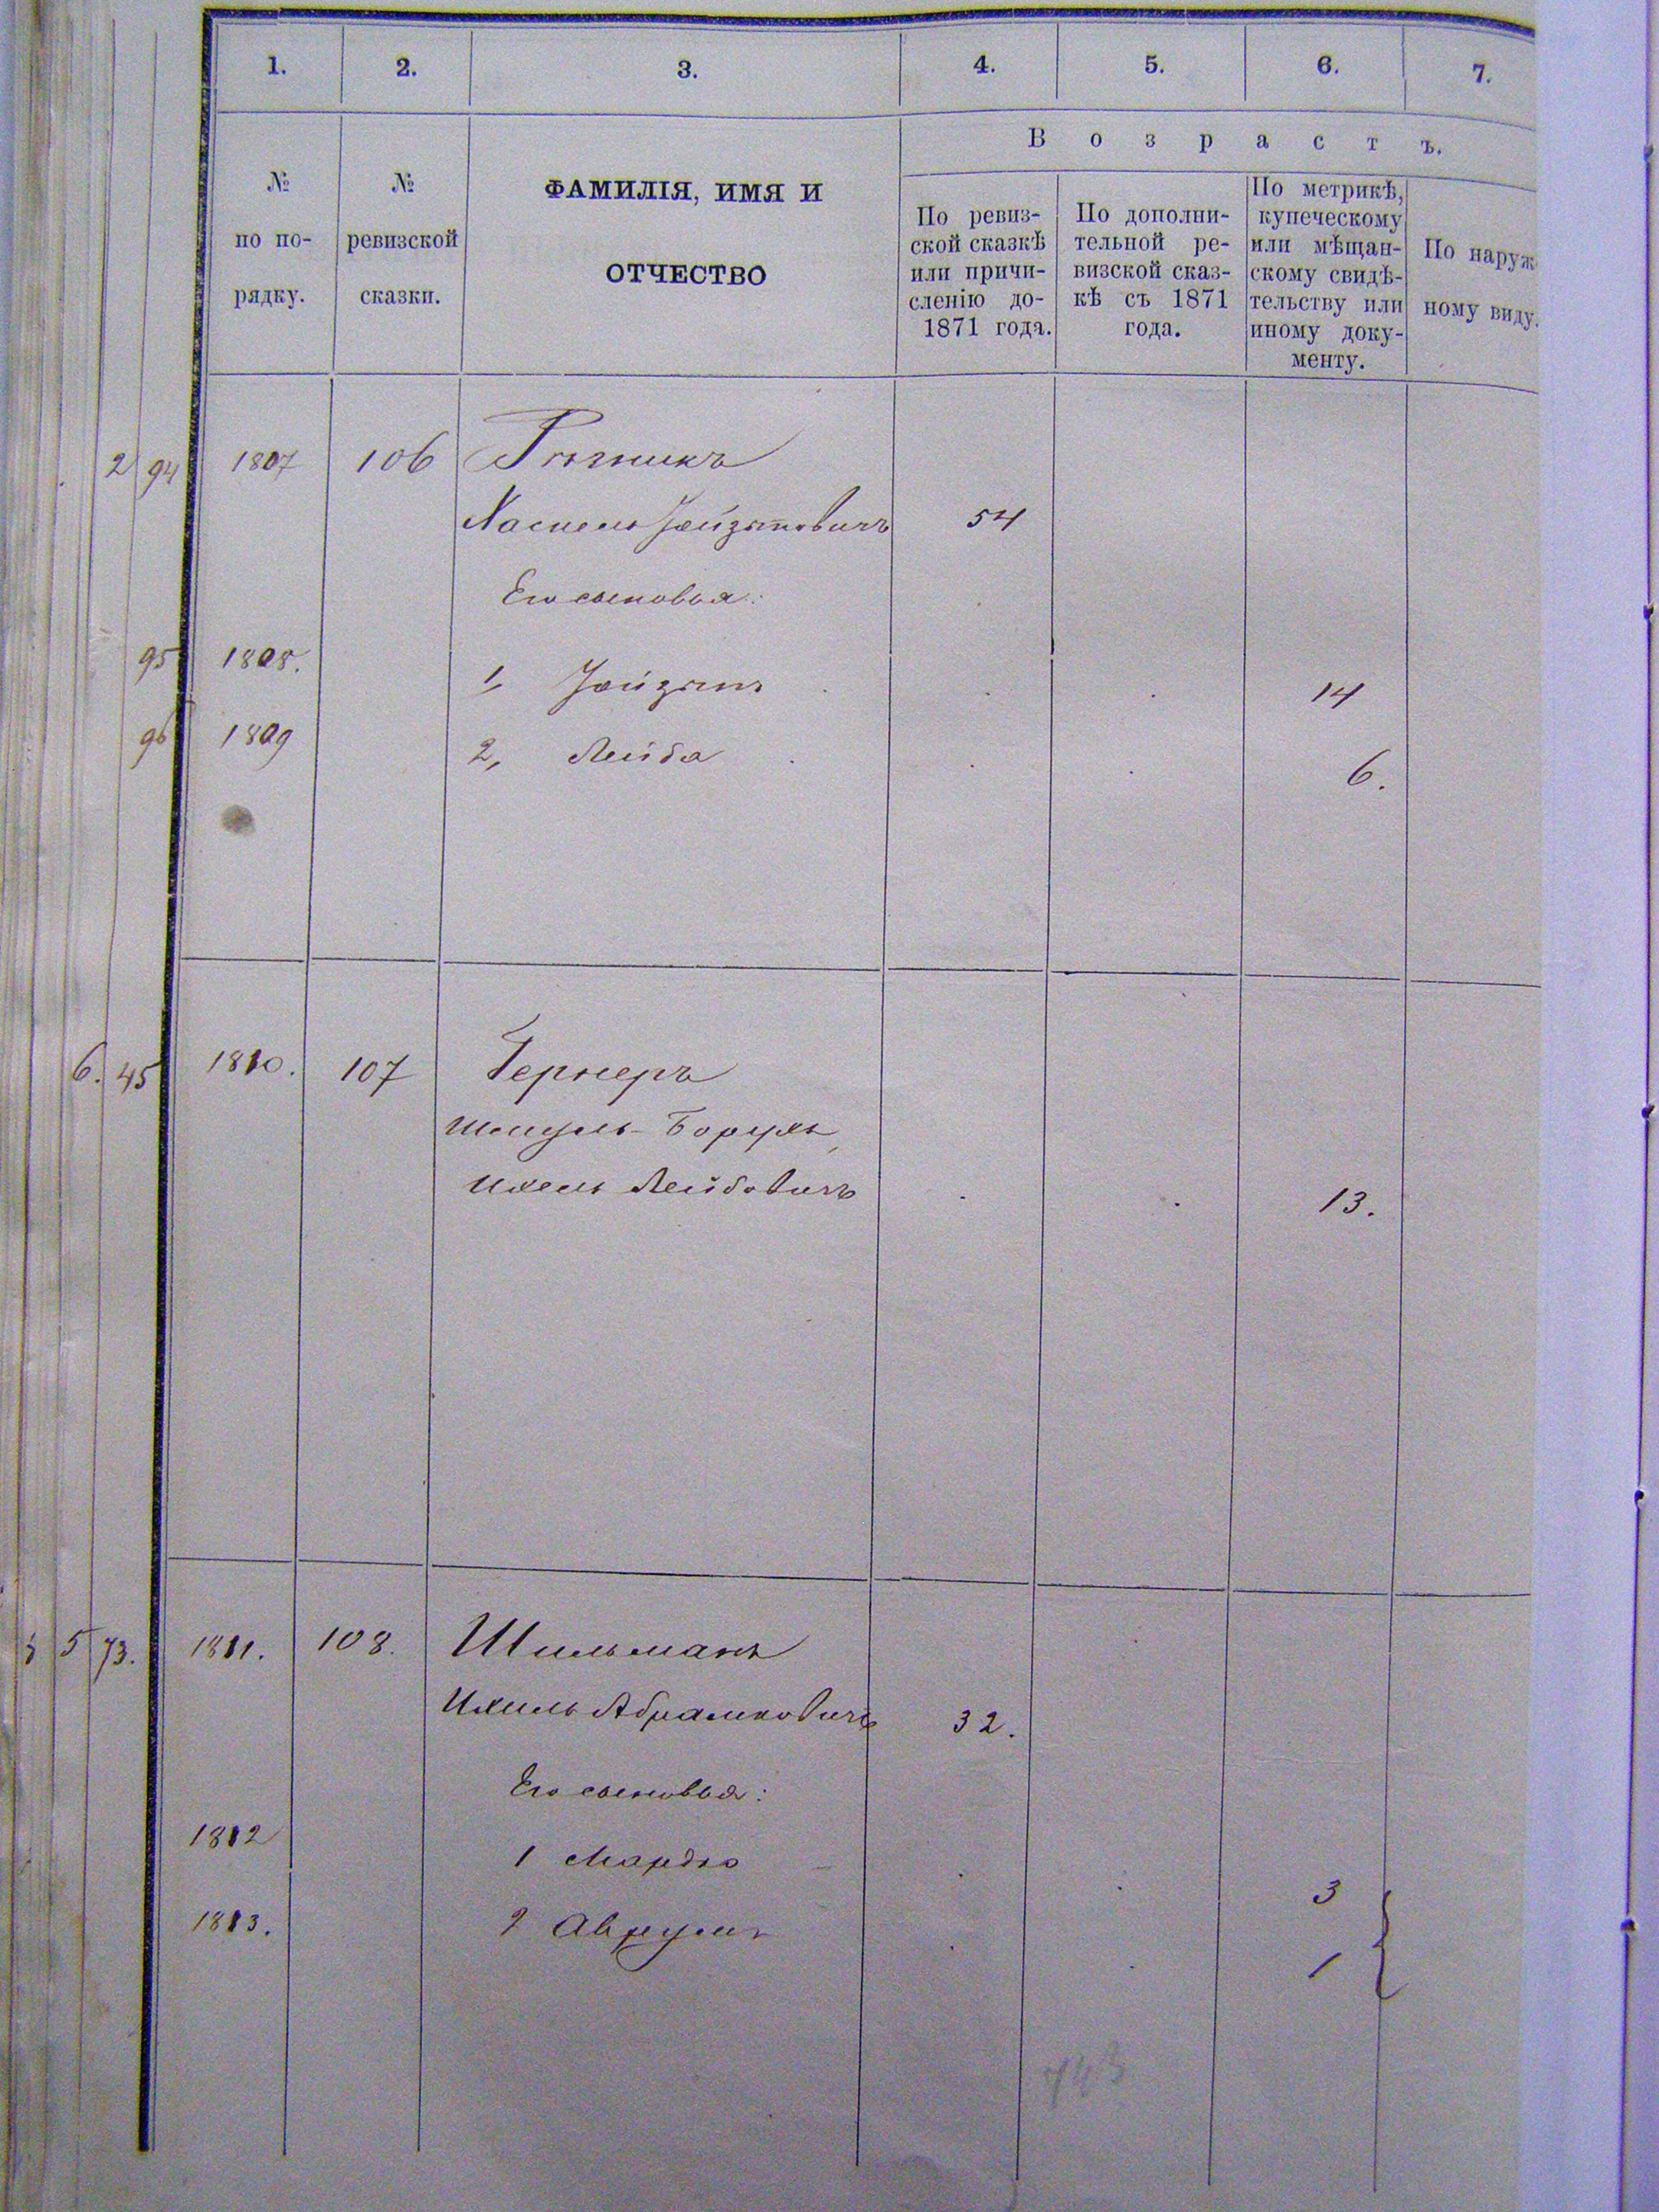 1. 2. 3. 4. 5. 6. 7.
Возрастъ.
№ по по-рядку.
№ ревизской сказки.
ФАМИЛІЯ, ИМЯ И
ОТЧЕСТВО
По ревиз-
ской сказкѣ
или причи-
сленію до-
1871 года.
По дополни-
тельной ре-
визской сказ-
кѣ съ 1871
года.
По метрикѣ,
купеческому
или мѣщан-
скому свидѣ-
тельству или
иному доку-
менту.
По наруж
ному виду.
2 94 1807 106
54
Его сыновья:
95 1808. 1, 14
96 1809 2, Лейба 6.
6. 45 1810. 107 Гернеръ
Шмуль-Борухъ,
Ихель Лейбовичъ 13.
5 73. 1811. 108. Шильманъ
Ихиль Абрамковичъ 32.
Его сыновья:
1812 1 Мордко 3
1813. 2 Аврумъ 1
743